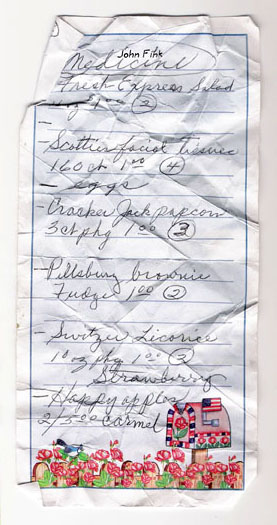 John Fink
Medicine
Fresh Express Salad
2
-
Scotties facial tissues
160 ct 1.00 4
- eggs
- Cracker Jack popcorn
3 ct phg 1.00 3
- Pillsbury brownie
Fudge 1.00 2
- Switzer Licorice
10 oz phg 1.00 2
Strawberry
- Happy apples
2/5.00 Carmel